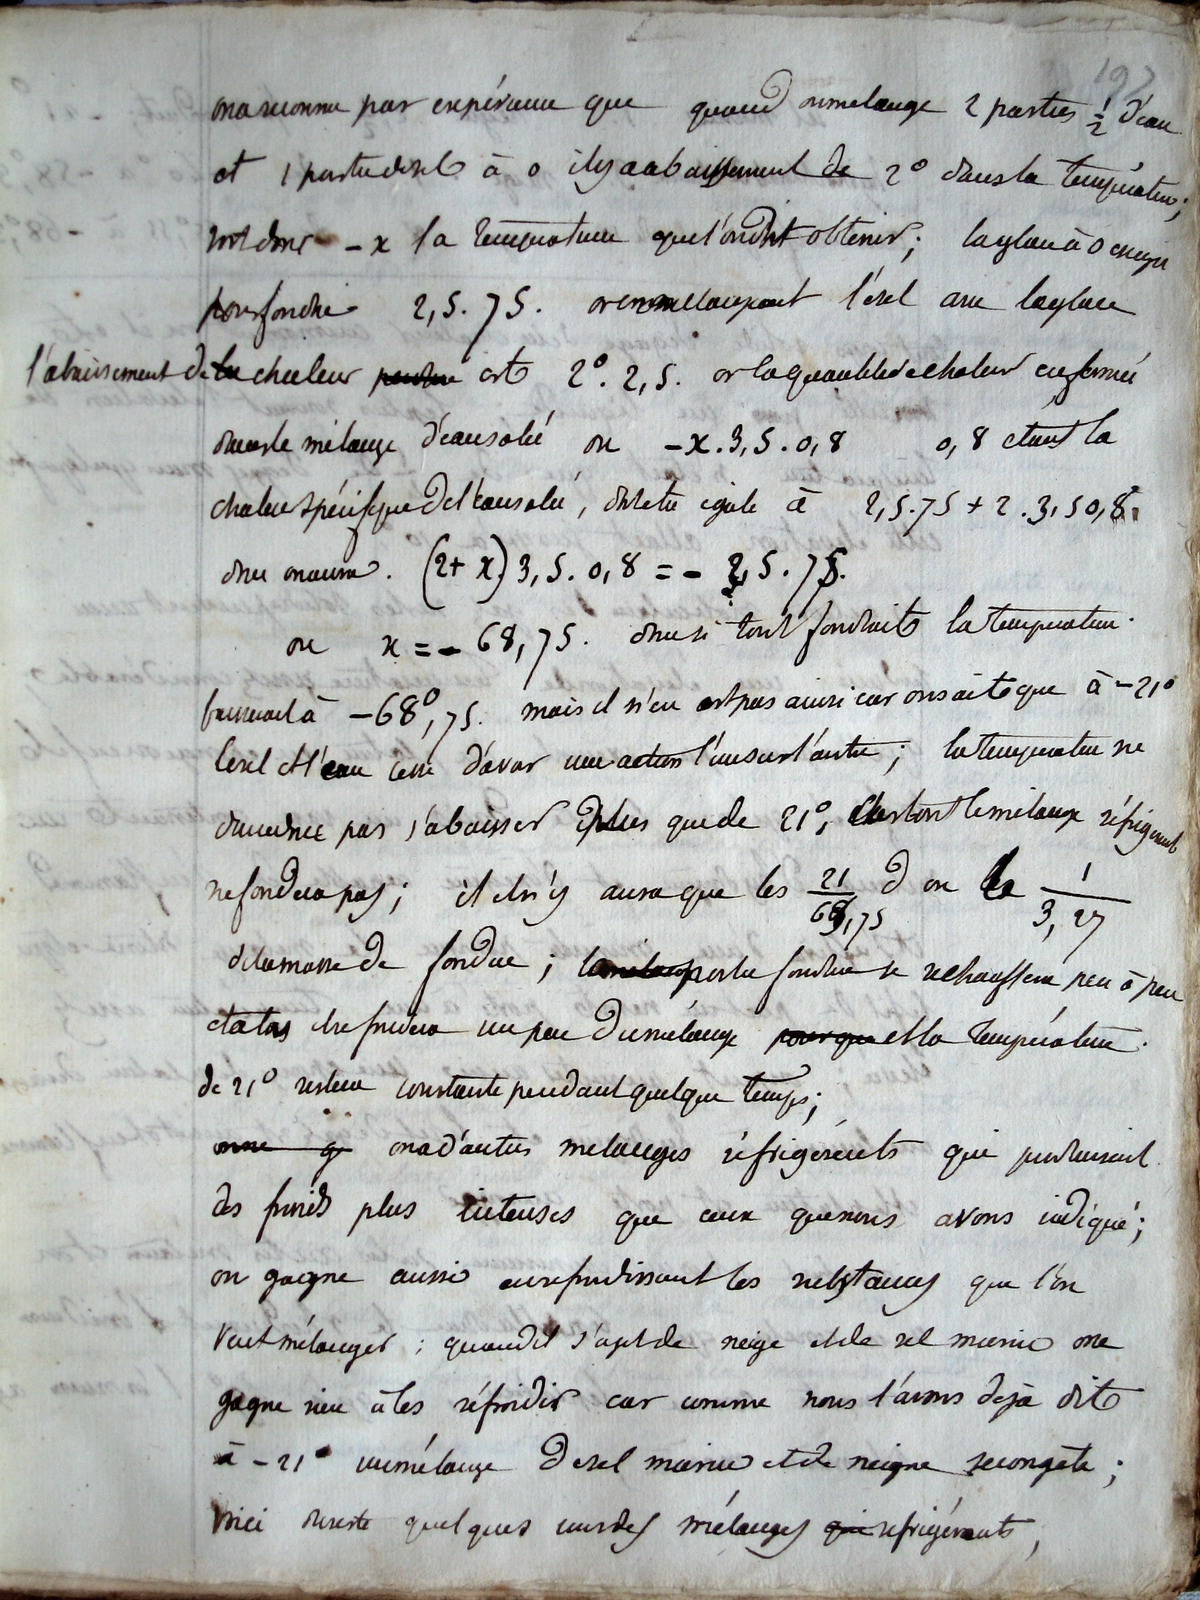 197
on a reconnu par expérience que quand on mélange 2 parties 1/2 d'eau
et 1 partie de sel à 0 il y a abaissement de 2° dans la température;
soit donc -x la température que l'on doit obtenir; la glace à 0 exige
pour fondre 2,5.75. or en mélangeant le sel avec la glace
l'abaissement de la chaleur perdue est 2°.2,5. or la quantité de chaleur enfermée
dans le mélange d'eau salé ou -x.3,5.0,8 0,8 étant la
chaleur spécifique de l'eau salé, doit être égale à 2,5.75 + 2.3,5 0,8.
donc on aura. (2+x) 3,5.0,8 = - 2,5.75.
ou x = - 68,75. donc si tout fondait la température
baisserait à -68°,75. mais il n'en est pas ainsi car on sait que à -21°
le sel et l'eau cesse d'avoir une action l'un sur l'autre; la température ne
pas s'abaisser plus que de 21°, tout le mélange réfrigérent
ne fondera pas; il n'y aura que les 21/68,75 ou le 1/3,27
de la masse de fondue; la partie fondue se rechauffera peu à peu
un peu du mélange pour que et la température
de 21° restera constante pendant quelque temps;
on a d'autres mélanges réfrigérents qui produisent
des froids plus intenses que ceux que nous avons indiqué;
on gagne aussi en refroidissant les substances que l'on
veut mélanger; quand il s'agit de neige et de sel marin on ne
gagne rien à les réfroidir car comme nous l'avons déjà dit
à -21° un mélange de sel marin et de neigne se congèle;
voici du reste quelques uns des mélanges qui réfrigérants,